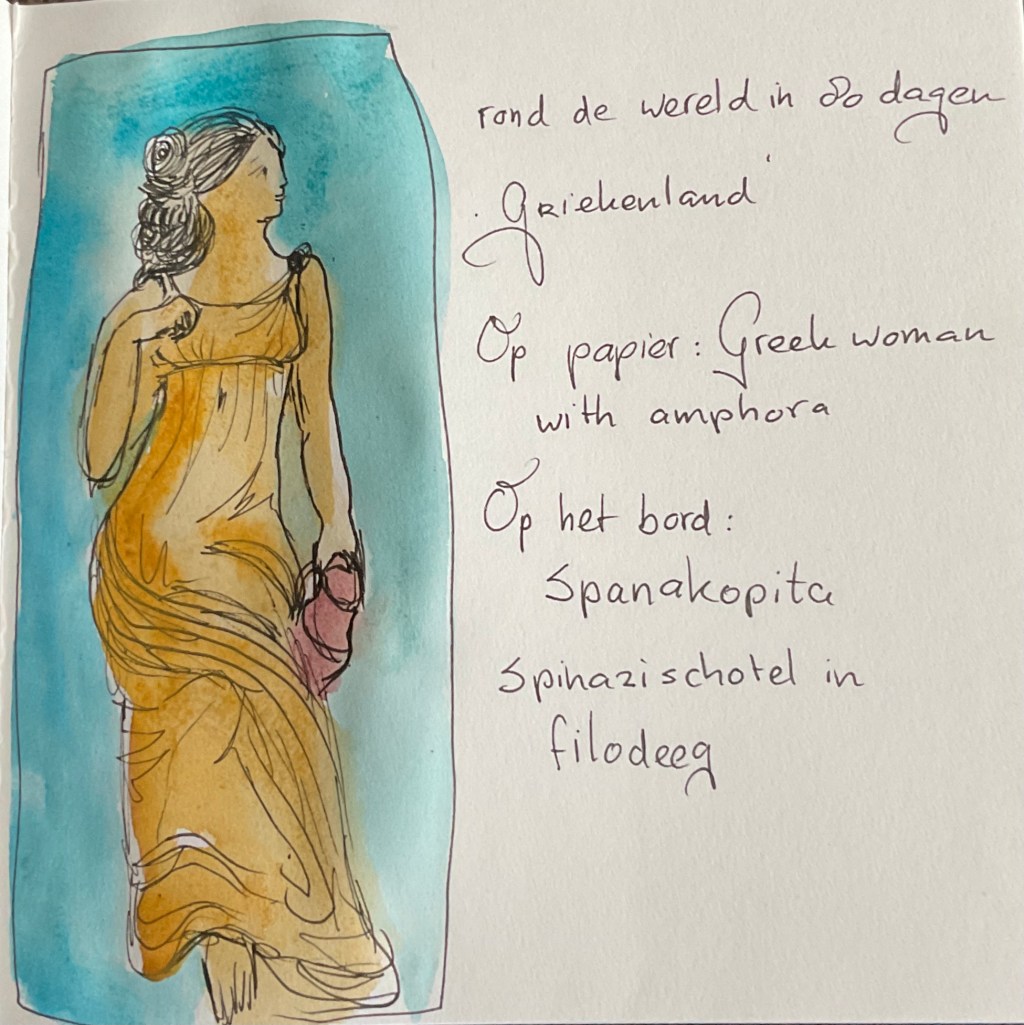 rond de wereld in 80 dagen
Griekenland
Op papier: Greek woman
with amphora
Op het bord:
Spanakopita
Spinazischotel in
filodeeg